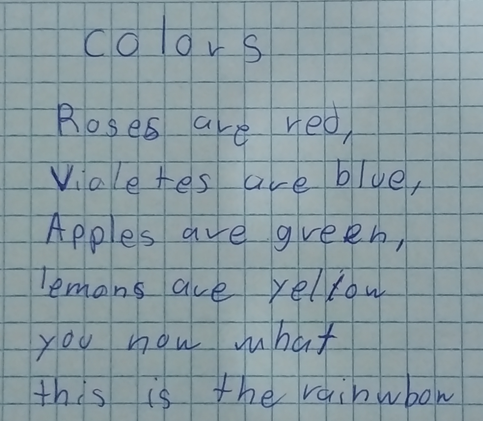 colors
Roses are red,
Violetes are blue,
Apples are green,
lemons are yellow
you now what
this is the rainwbow